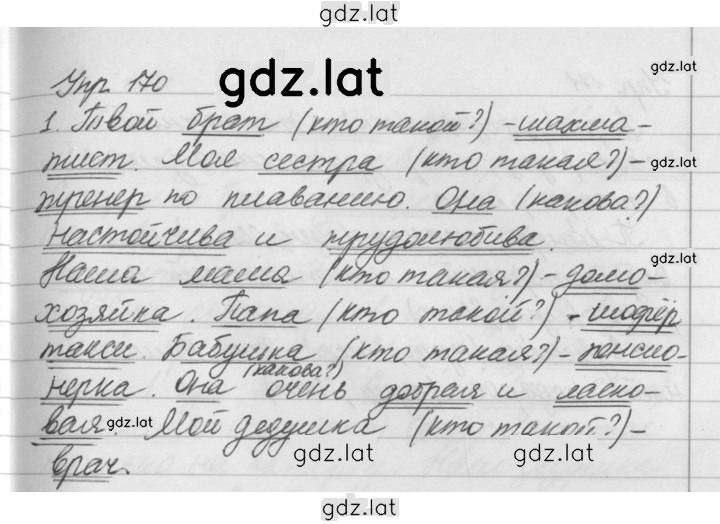 gdz.lat
Упр. 170
gdz.lat
gdz.lat
1. Твой брат (кто такой?) - шахма-
тист. Моя сестра (кто такая?) -
gdz.lat
тренер по плаванию. Она (какова?)
настойчива и трудолюбива.
Наша мама (кто такая?) - домо-
хозяйка. Папа (кто такой?) - шофёр
такси. Бабушка (кто такая?) - пенсио-
нерка. Она (какова?) очень добрая и ласко-
вая. gdz.lat Мой дедушка (кто такой?) -
врач.
gdz.lat
gdz.lat
gdz.lat